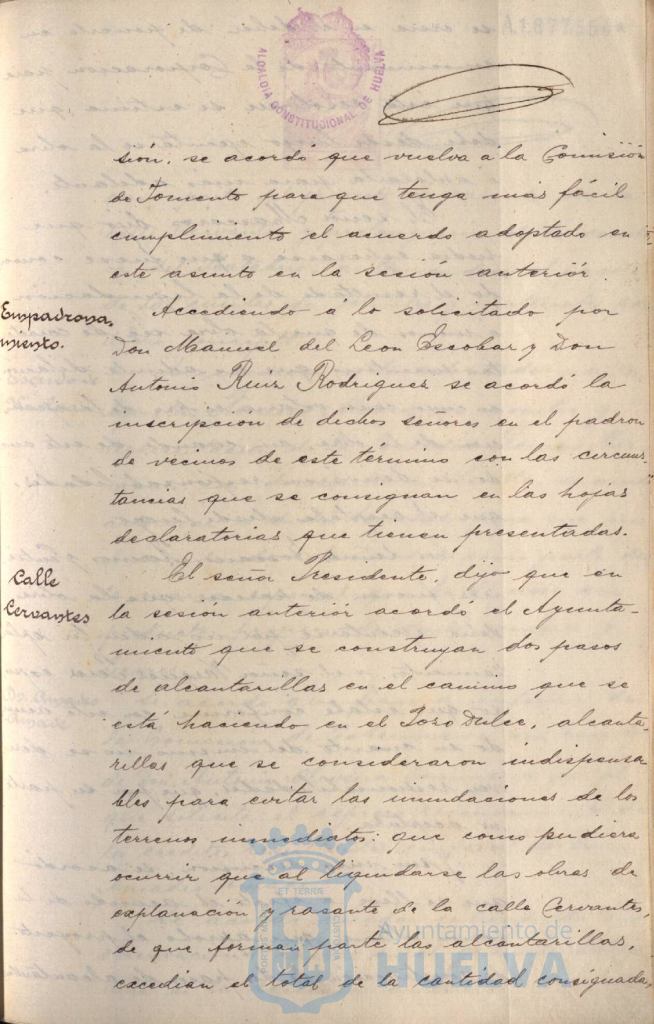 ALCALDIA CONSTITUCIONAL DE HUELVA
sión, se acordó que vuelva á la Comisión
de Fomento para que tenga más fácil
cumplimiento el acuerdo adoptado en
este asunto en la sesión anteriór.
Empadrona-
miento.
Accediendo á lo solicitado por
Don Manuel del Leon Escobar y Don
Antonio Ruiz Rodriguez se acordó la
inscripción de dichos señores en el padron
de vecinos de este término con las circuns-
tancias que se consignan en las hojas
declaratorias que tienen presentadas.
Calle
Cervantes
El señor Presidente, dijo que en
la sesión anteriór acordó el Ayunta-
miento que se construyan dos pasos
de alcantarillas en el camino que se
está haciendo en el Pozo Dulce, alcanta-
rillas que se consideraron indispensa-
bles para evitar las inundaciones de los
terrenos inmediatos: que como pudiera
ocurrir que al liquidarse las obras de
explanación y rasante de la calle Cervantes,
de que forman parte las alcantarillas,
excedian el total de la cantidad consignada,
Ayuntamiento de
HUELVA